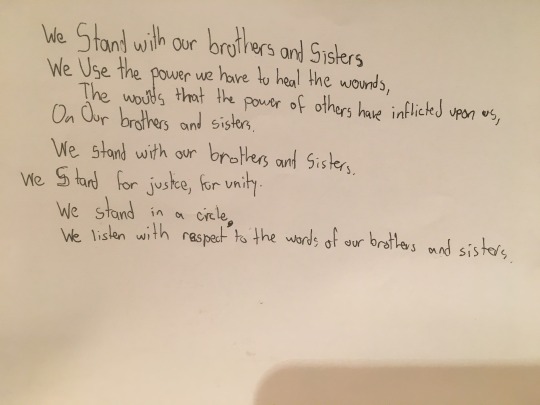 We Stand with our brothers and Sisters
We Use the power we have to heal the wounds,
The wouds that the power of others have inflicted upon us,
On Our brothers and sisters.
We stand with our brothers and Sisters.
We Stand for justce, for unity.
We stand in a circle,
We listen with respect to the words of our brothers and sisters.